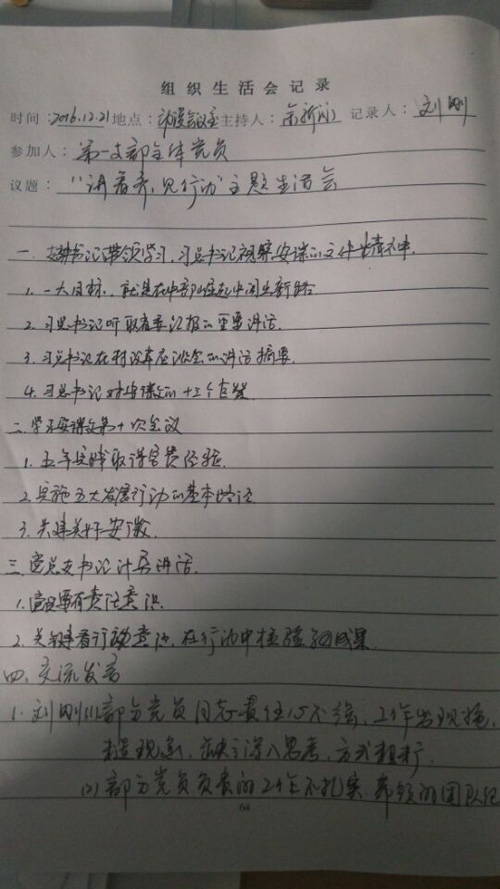 组织生活会记录
时间：2016.12.21 地点： 主持人： 记录人：刘刚
参加人：第一支部全体党员
议题："讲看齐，见行动"主题生活会
一. 支部书记带领学习，习总书记视察安徽的文件精神.
1. 一大目标，就是在中部崛起中闯出新路
2. 习总书记听取省委汇报的重要讲话.
3. 习总书记在农村改革座谈会的讲话摘要.
4. 习总书记对安徽的十三个
二. 学习安徽省第十次会议
1. 五年 取得宝贵经验.
2. 实施五大发展行动的基本路径
3. 共建美好安徽.
三. 总支书记计 讲话.
1. 要有责任意识.
2. 关键看行动意识，在行动中检验 成果.
四. 交流发言
1. 刘刚(1)部分党员同志责任心不强，工作出现拖，
现象，缺乏深入思考，方式粗
(2) 部分党员负责的工作不扎实 的团队